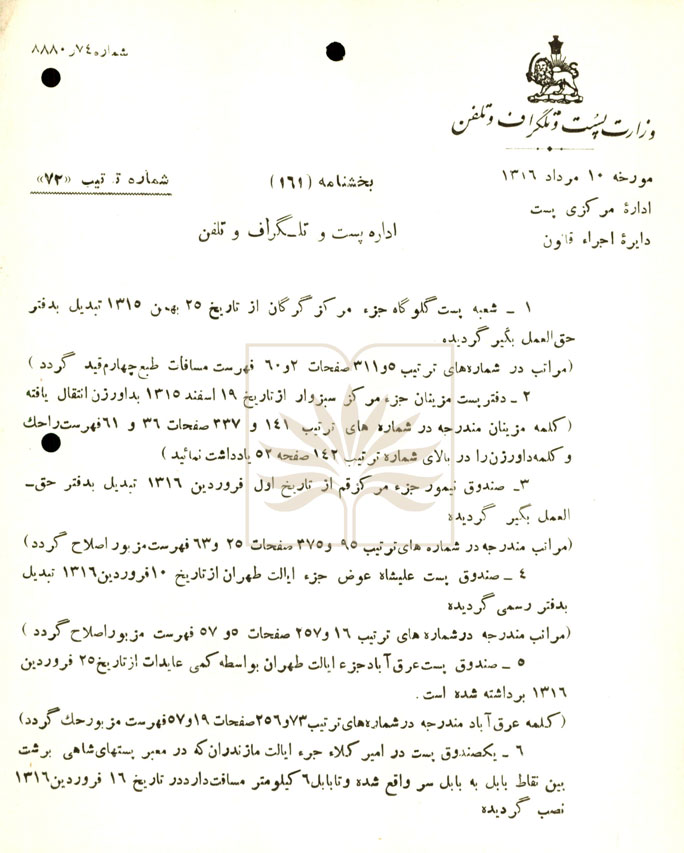 شماره ۷۴ر۸۸۸۰
وزارت پست و تلگراف و تلفن
مورخه ۱۰ مرداد ۱۳۱۶
بخشنامه (۱۶۱)
شماره ترتیب «۷۲»
ادارهٔ مرکزی پست
دایرهٔ اجراء قانون
اداره پست و تلـگراف و تلفن
۱ ـ شعبه پست گلوگاه جزء مرکز گرگان از تاریخ ۲۵ بهمن ۱۳۱۵ تبدیل بدفتر
حق‌العمل بگیر گردیده
(مراتب در شماره‌های ترتیب ۵ و ۳۱۱ صفحات ۲ و ۶۰ فهرست مسافات طبع چهارم قید گردد )
۲ ـ دفتر پست مزینان جزء مرکز سبزوار از تاریخ ۱۹ اسفند ۱۳۱۵ بداورزن انتقال یافته
(کلمه مزینان مندرجه در شماره های ترتیب ۱۴۱ و ۳۳۷ صفحات ۳۶ و ۶۱ فهرست را حك
و کلمه داورزن را در بالای شماره ترتیب ۱۴۲ صفحه ۵۲ یادداشت نمائید )
۳ـ صندوق نیمور جزء مرکز قم از تاریخ اول فروردین ۱۳۱۶ تبدیل بدفتر حق‌ـ
العمل بگیر گردیده
(مراتب مندرجه در شماره های ترتیب ۹۵ و ۳۷۵ صفحات ۲۵ و ۶۳ فهرست مزبور اصلاح گردد)
۴ ـ صندوق پست علیشاه عوض جزء ایالت طهران از تاریخ ۱۰ فروردین ۱۳۱۶ تبدیل
بدفتر رسمی گردیده
(مراتب مندرجه در شماره های ترتیب ۱۶ و ۲۵۷ صفحات ۵ و ۵۷ فهرست مزبور اصلاح گردد )
۵ ـ صندوق پست عرق آباد جزء ایالت طهران بواسطه کمی عایدات از تاریخ ۲۵ فروردین
۱۳۱۶ برداشته شده است .
(کلمه عرق آباد مندرجه در شماره‌های ترتیب ۷۳ و ۲۵۶ صفحات ۱۹ و ۵۷ فهرست مزبور حك گردد)
۶ ـ یکصندوق پست در امیر کلاء جزء ایالت مازندران که در معبر پستهای شاهی برشت
بین نقاط بابل به بابل سر واقع شده و تا بابل ۶ کیلومتر مسافت دارد در تاریخ ۱۶ فروردین ۱۳۱۶
نصب گردیده